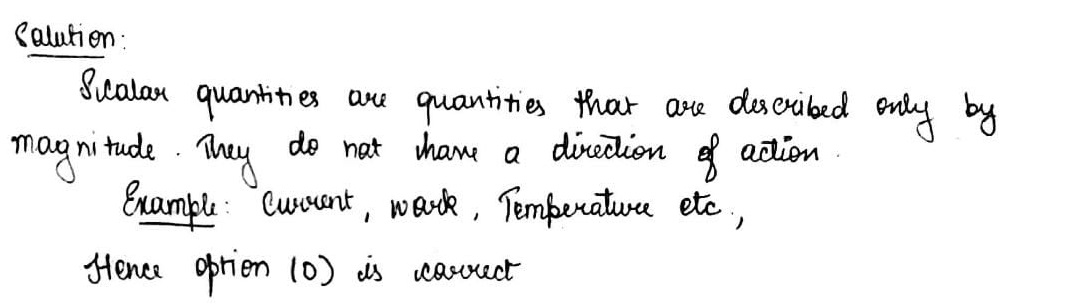 Solution:
Scalar quantities are quantities that are described only by
magnitude. They do not have a direction of action.
Example: Current, work, Temperature etc.,
Hence option (D) is correct